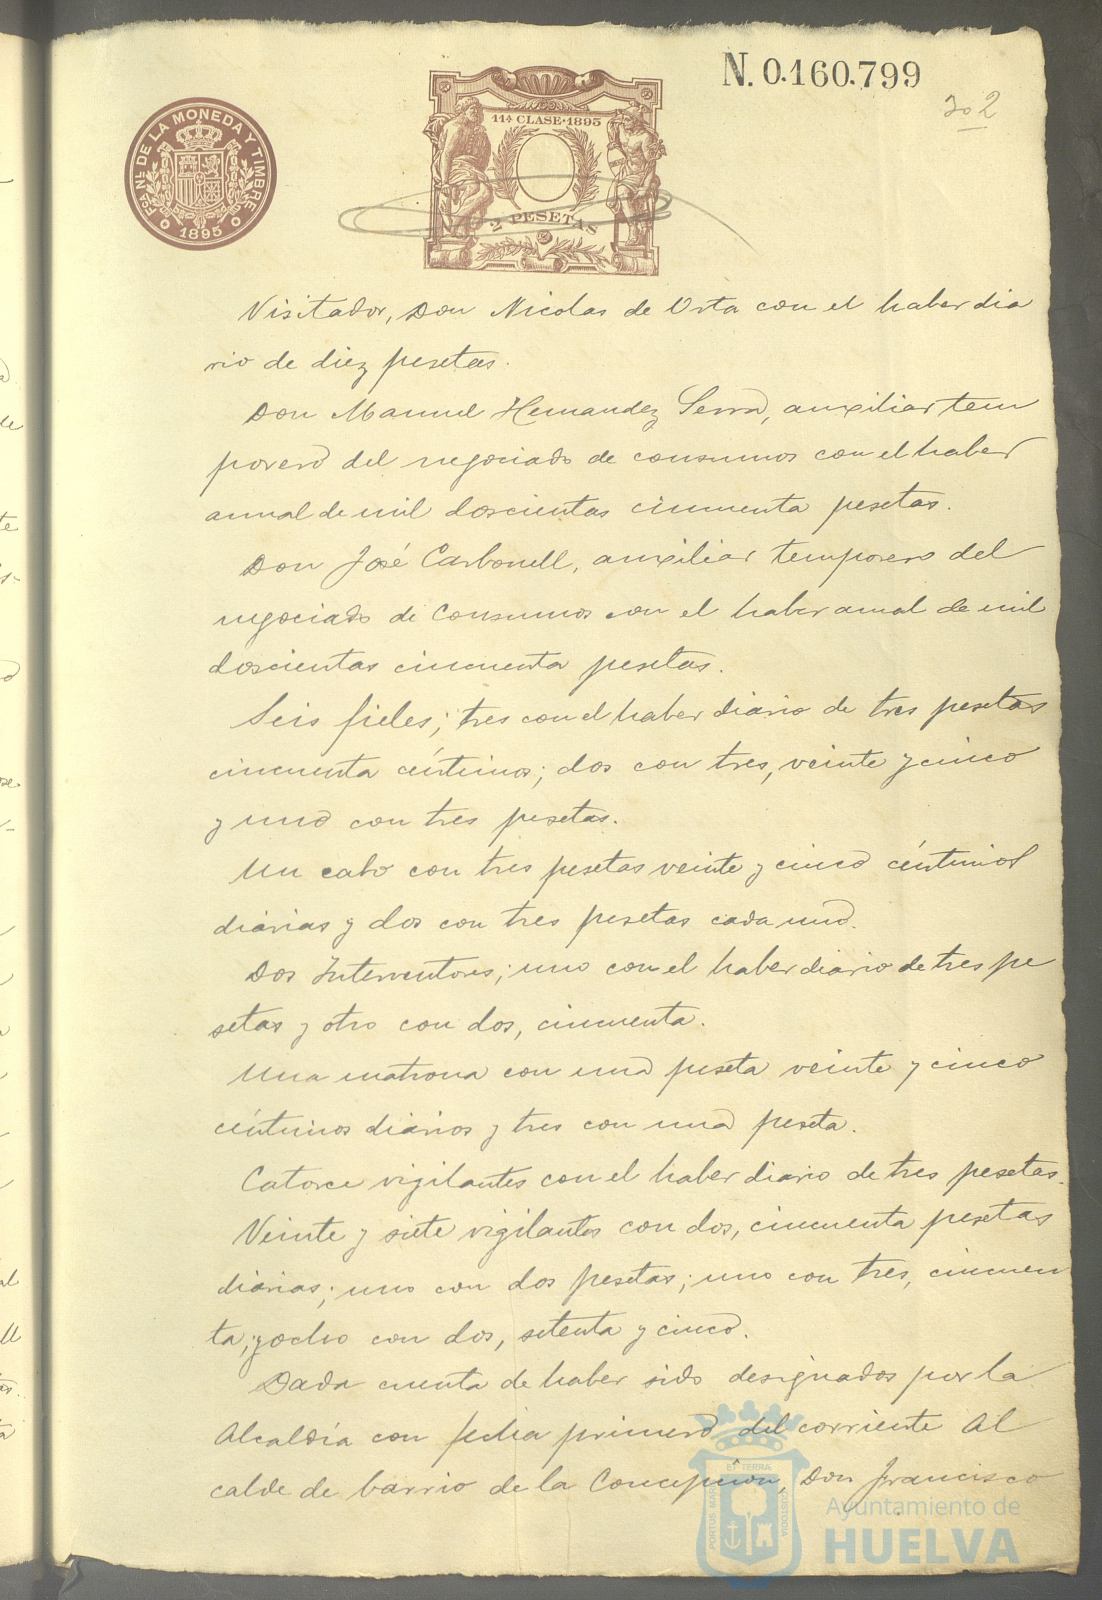 N. 0.160.799
302
FCA. NL. DE LA MONEDA Y TIMBRE
1895
11ª CLASE·1895
2 PESETAS
Visitador, Don Nicolas de Orta con el haber dia
rio de diez pesetas.
Don Manuel Hernandez Serra, auxiliar tem
porero del negociado de consumos con el haber
anual de mil doscientas cincuenta pesetas.
Don José Carbonell, auxiliar temporero del
negociado de Consumos con el haber anual de mil
doscientas cincuenta pesetas.
Seis fieles; tres con el haber diario de tres pesetas
cincuenta céntimos; dos con tres, veinte y cinco
y uno con tres pesetas.
Un cabo con tres pesetas veinte y cinco céntimos
diarias y dos con tres pesetas cada uno.
Dos Interventores; uno con el haber diario de tres pe
setas y otro con dos, cincuenta.
Una matrona con una peseta veinte y cinco
céntimos diarios y tres con una peseta.
Catorce vigilantes con el haber diario de tres pesetas.
Veinte y siete vigilantes con dos, cincuenta pesetas
diarias; uno con dos pesetas; uno con tres, cincuen
ta; y ocho con dos, setenta y cinco.
Dada cuenta de haber sido designados por la
Alcaldía con fecha primero del corriente Al
calde de barrio de la Concepción, Don Francisco
PORTUS MARIS ET TERRAE CUSTODIA
Ayuntamiento de
HUELVA